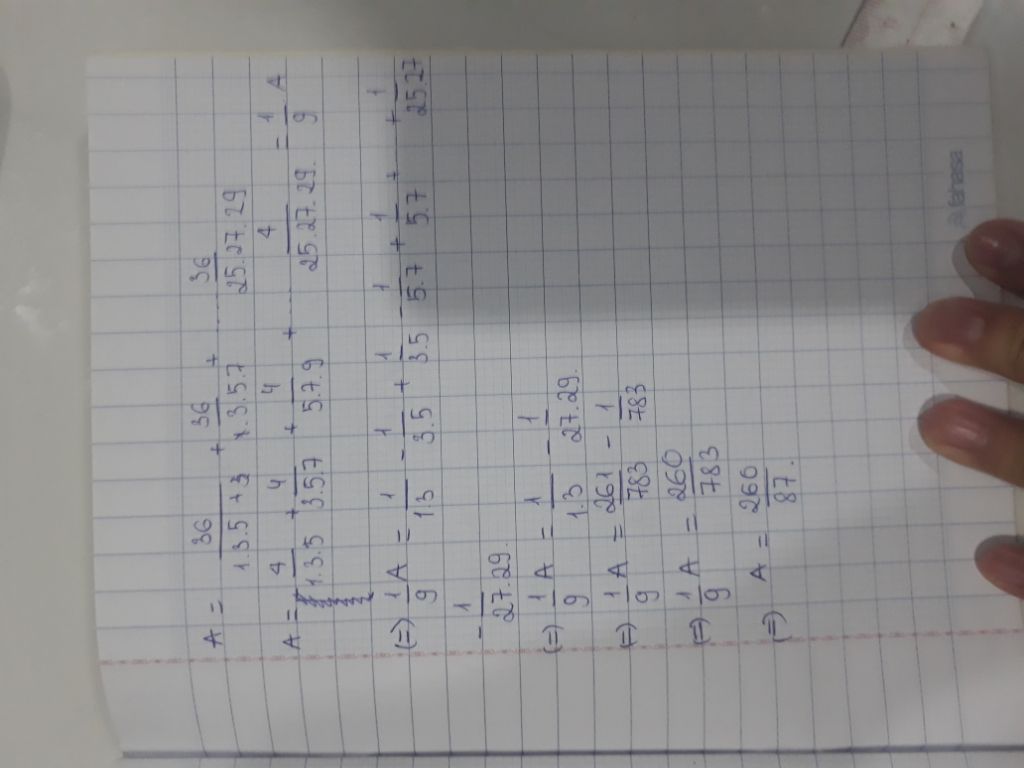 A = 36/1.3.5+3 + 36/1.3.5.7 + ..... 36/25.27.29
A = 4/1.3.5 + 4/3.5.7 + 4/5.7.9 + ........ 4/25.27.29. = 1/9 A
(=) 1/9 A = 1/1.3 - 1/3.5 + 1/3.5 - 1/5.7 + 1/5.7 + ... + 1/25.27
- 1/27.29.
(=) 1/9 A = 1/1.3 - 1/27.29.
(=) 1/9 A = 261/783 - 1/783
(=) 1/9 A = 260/783
(=) A = 260/87.